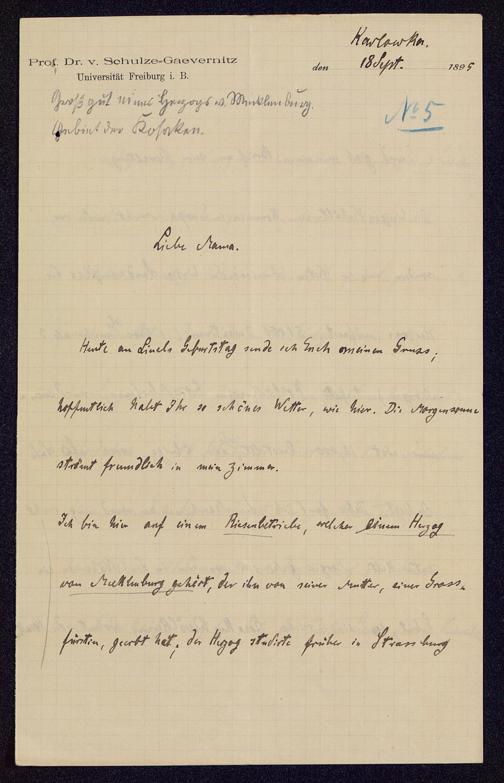 Karlowka.
Prof. Dr. v. Schulze-Gaevernitz
Universität Freiburg i. B.
den 18 Sept. 1895
Großgut eines Herzogs v. Mecklenburg.
Gebiet der Kosaken.
No 5
Liebe Mama.
Heute an Liesels Geburtstag sende ich Euch meinen Gruss;
hoffentlich habt Ihr so schönes Wetter, wie hier. Die Morgensonne
strömt freundlich in mein Zimmer.
Ich bin hier auf einem Riesenbetriebe, welcher einem Herzog
von Mecklenburg gehört, der ihn von seiner Mutter, einer Gross-
fürstin, geerbt hat; der Herzog studirte früher in Strassburg